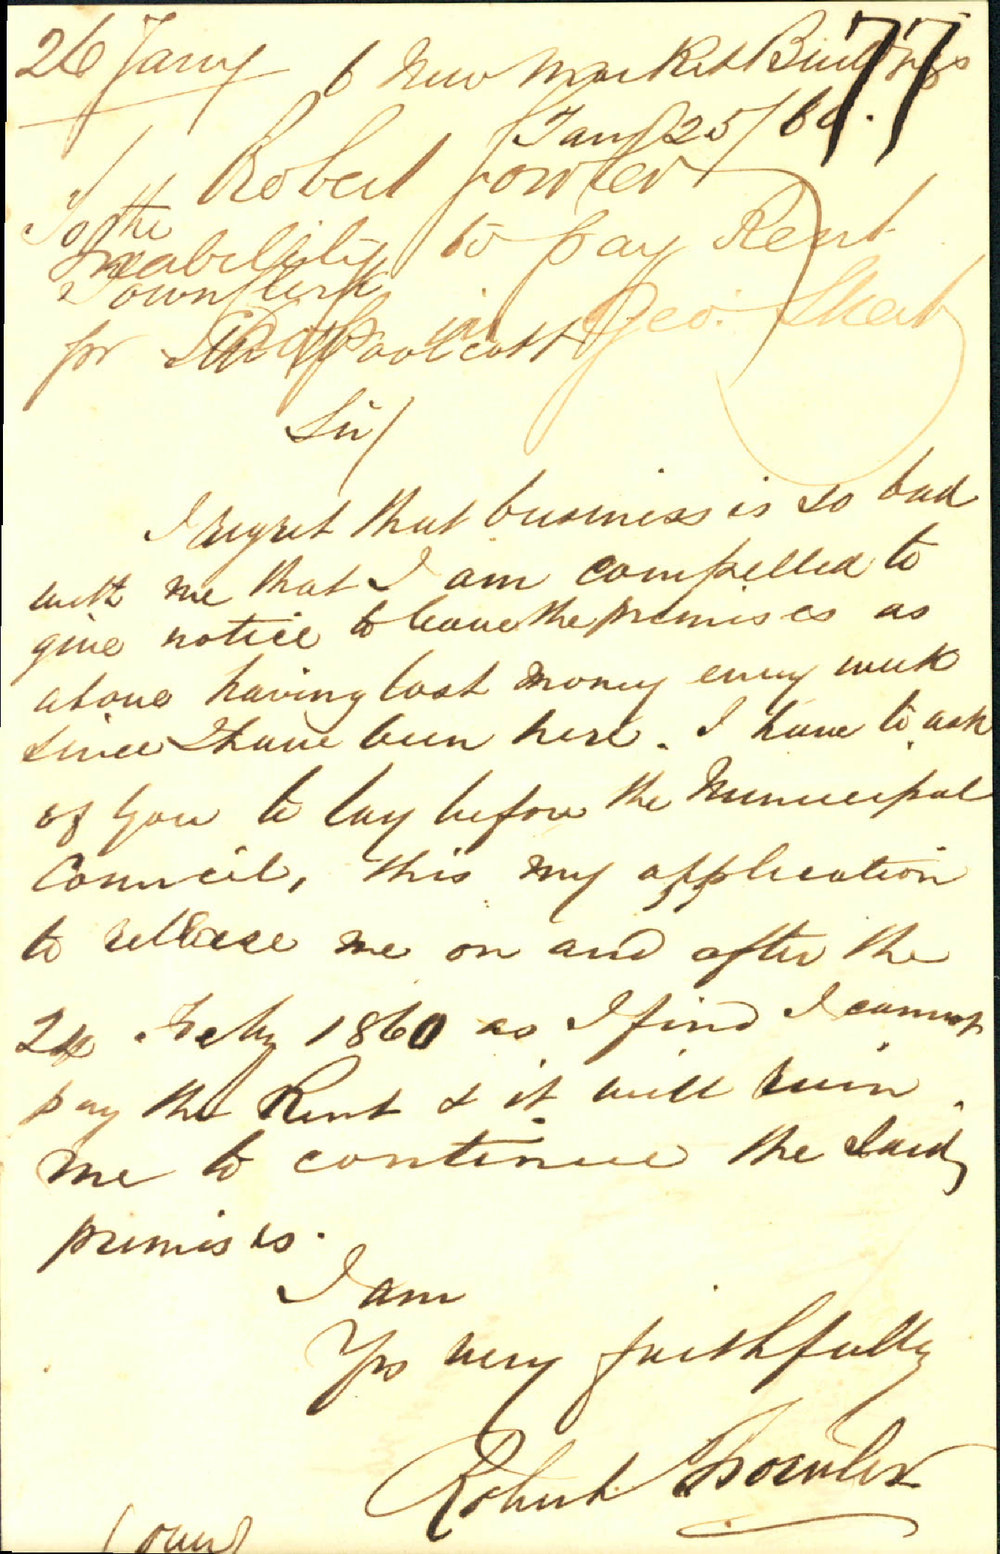 26 Jany
77
6 New Market Buildings
Jany 25/60.
Robert Fowler
To the
Inability to pay Rent
Town Clerk
for Shop in Geo: Street
Sir/
I regret that business is so bad
with me that I am compelled to
give notice to leave the premises as
above having lost money every week
since I have been here. I have to ask
of you to lay before the Municipal
Council, this my application
to release me on and after the
24 Feby 1860 as I find I cannot
pay the Rent & it will ruin
me to continue the said
premises.
I am
Yrs very faithfully
Robert Fowler
(over)